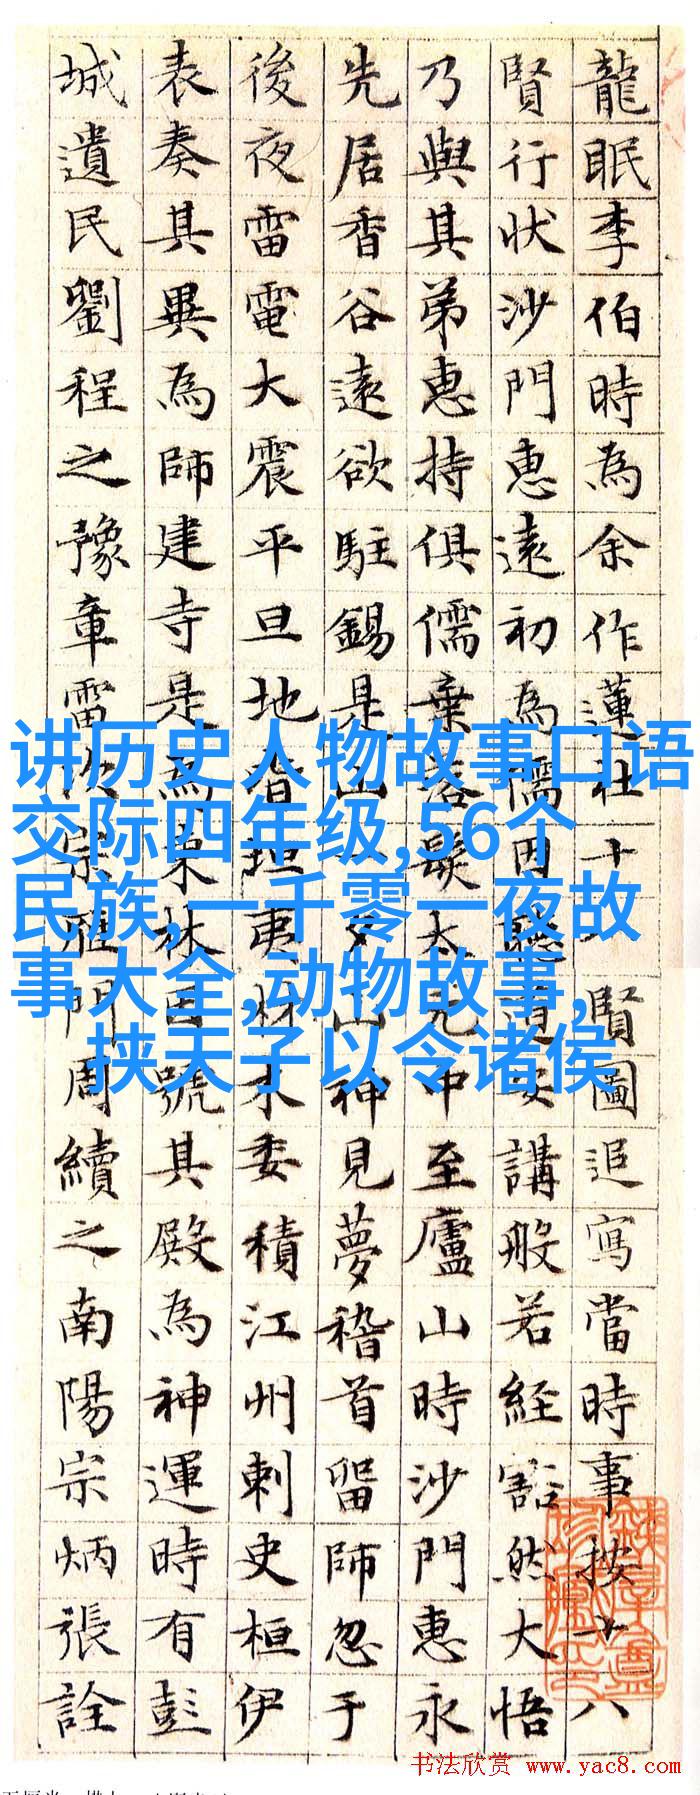 龍眠李伯時為余作蓮社十賢圖追寫當時事按十八
賢行狀沙門惠遠初為儒因聽道安講般若經豁然大悟
乃與其弟惠持俱儒棄落髮太元中至廬山時沙門惠永
先居香谷遠欲駐錫是山一夕山神見夢稽首留師忽于
後夜雷電大震平旦地皆坦夷材木委積江州刺史桓伊
表奏其異為師建寺是為東林自號其殿為神運時有彭
城遺民劉程之豫章雷次宗雁門周續之南陽宗炳張詮
讲历史人物故事口语
交际四年级,56个
民族,一千零一夜故
事大全,动物故事,
挟天子以令诸侯
书法欣赏 www.yac8.com